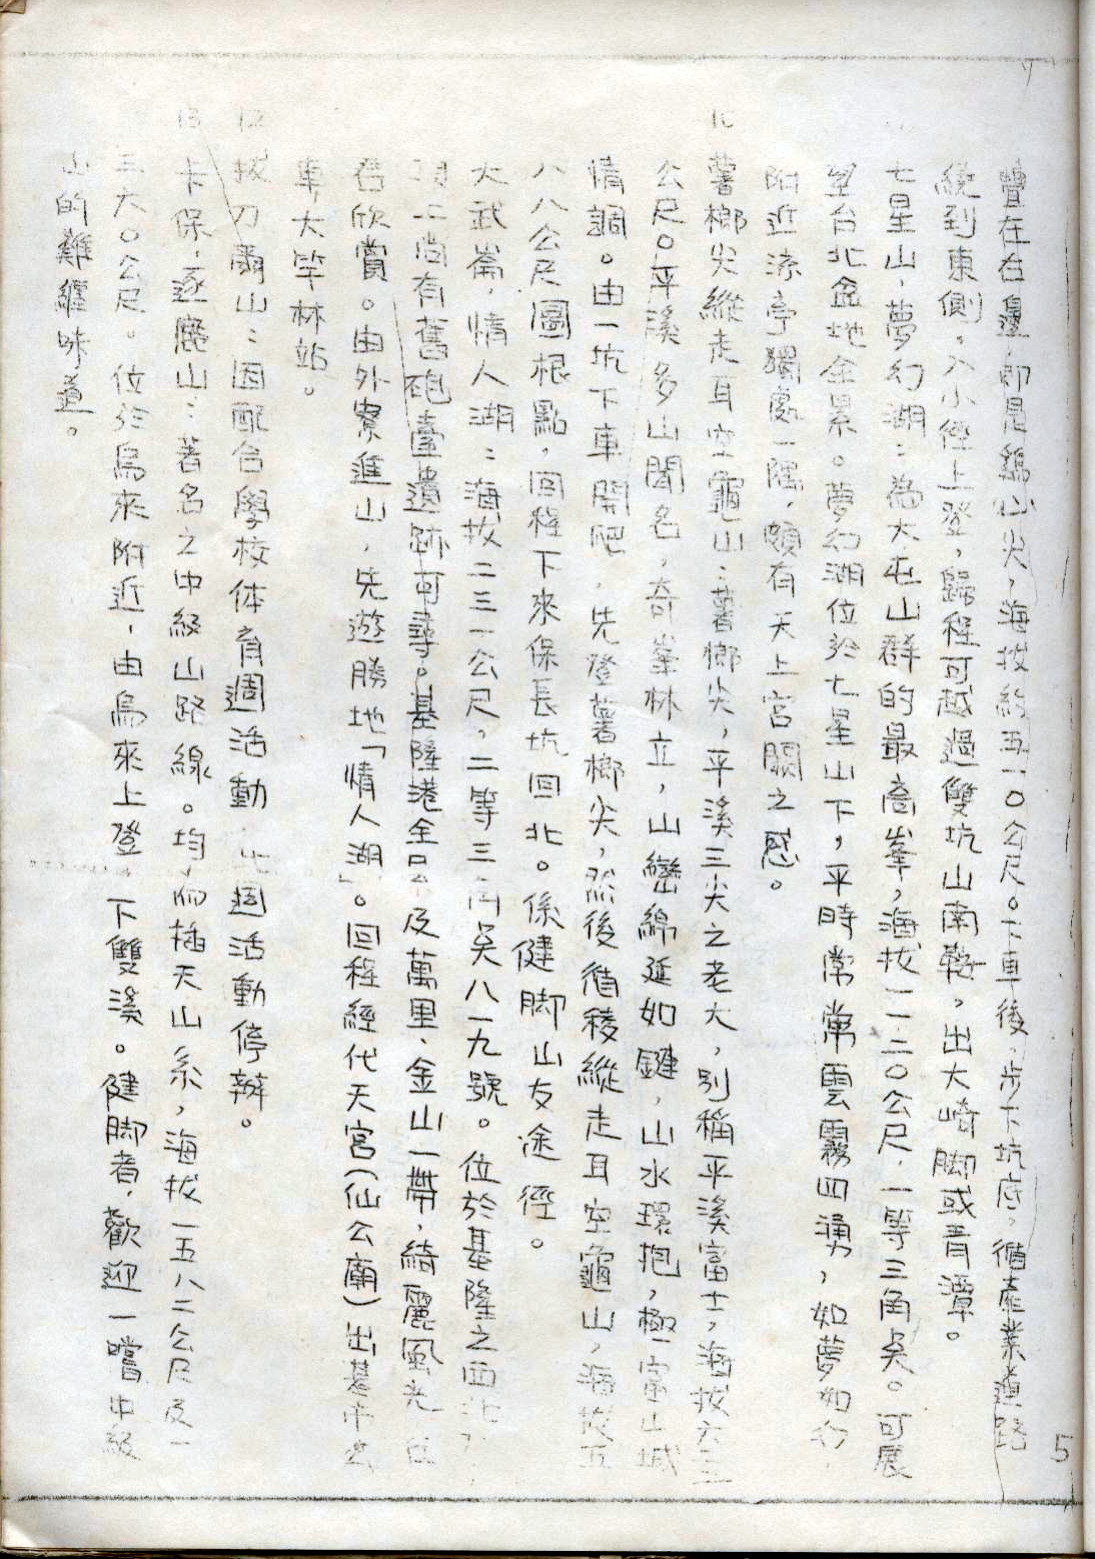 疊在右邊,即是鷂仙尖,海拔約五一〇公尺。下車後,步下坑底,循產業道路
繞到東側。入小徑上登,歸程可越過雙坑山南鞍,出大崎脚或青潭。
七星山,夢幻湖:為大屯山群的最高峯,海拔一一二〇公尺,一等三角奌。可展
望台北盆地全景。夢幻湖位於七星山下,平時常常雲霧四湧,如夢如幻,
附近涼亭獨處一隅,頗有天上宮闕之感。
10 薯榔尖縱走耳空龜山:薯榔尖,平溪三尖之老大,別稱平溪富士,海拔六二
公尺。平溪多山聞名,奇峯林立,山巒綿延如鏈,山水環抱,極富山城
情調。由一坑下車開爬,先登薯榔尖,然後循稜縱走耳空龜山,海拔五
八八公尺圖根點,回程下來保長坑回北。係健脚山友途徑。
大武崙,情人湖:海拔二三一公尺,二等三角奌八一九號。位於基隆之西北方,
頂上尚有舊砲臺遺跡可尋。基隆港全景及萬里、金山一帶,綺麗風光任
君欣賞。由外寮進山,先遊勝地「情人湖」。回程經代天宮(仙公廟)出基市公
車大竿林站。
12 拔刀爾山:因配合學校体育週活動,此週活動停辦。
13 卡保,逐鹿山:著名之中級山路線。均屬插天山系,海拔一五八二公尺及一
三六〇公尺。位於烏來附近,由烏來上登,下雙溪。健脚者,歡迎一嚐中級
山的難纏味道。
5